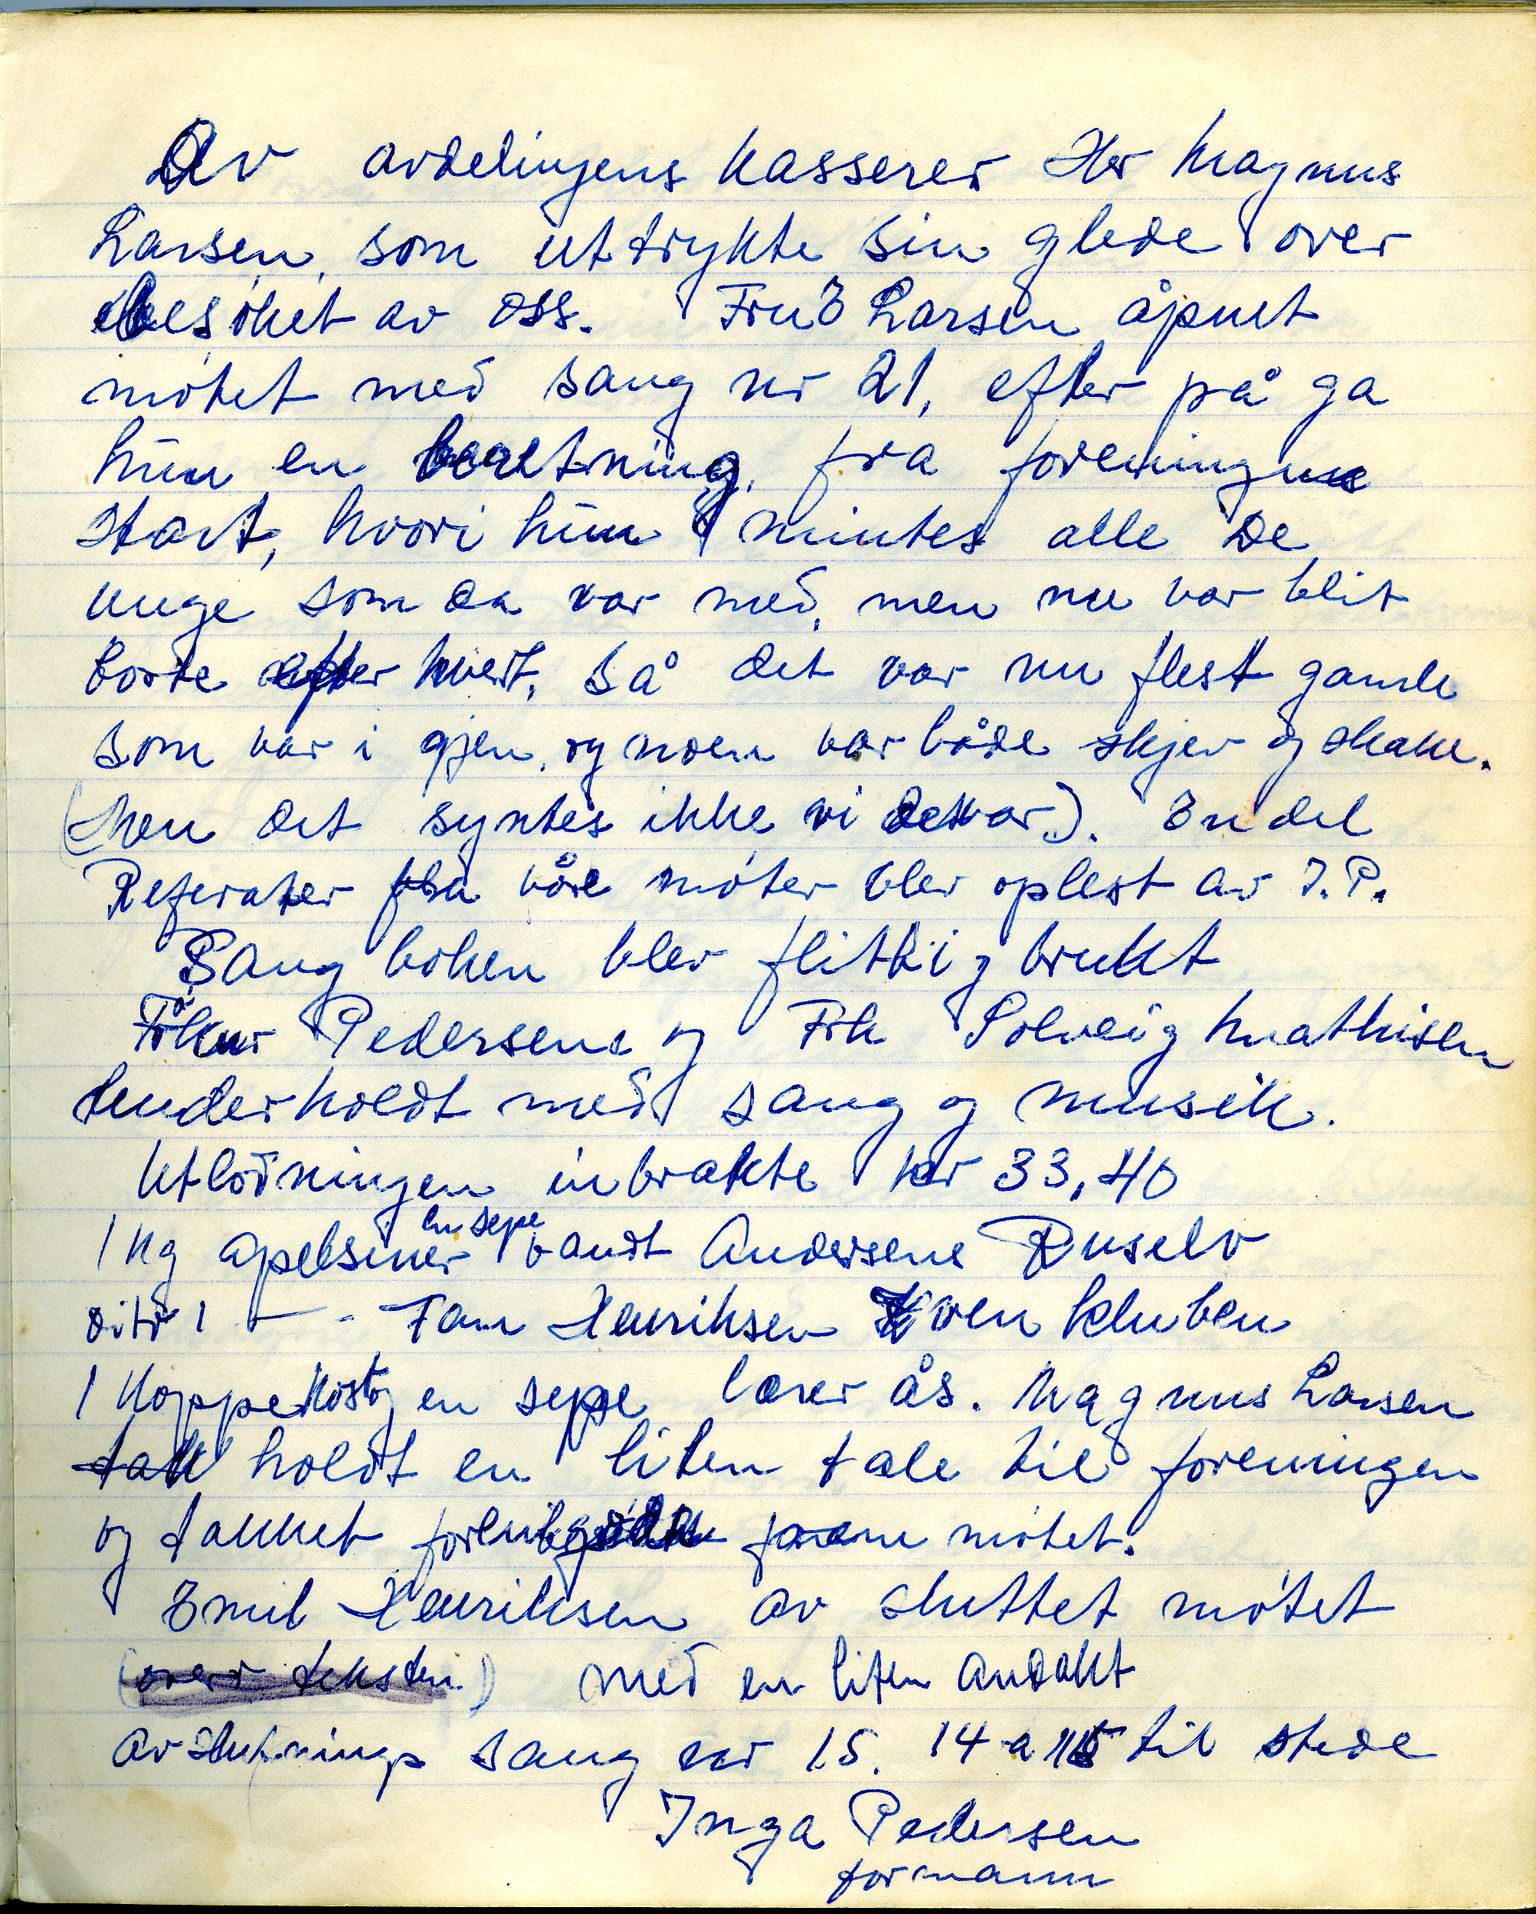 Av avdelingens kasserer Her Magnus
Larsen, som uttrykte sin glede over
besøket av oss. Fru E Larsen åpnet
møtet med sang nr 21, efter på ga
hun en beretning, fra foreningens
start, hvori hun mintes alle de
unge som da var med, men nu var blit
borte efter hvert, så det var nu flest gamle
som var i gjen, og noen var både skjev og skakk.
(Men det syntes ikke vi det var). En del
Referater fra våre møter blev oplest av I. P.
Sang boken blev flittig brukt
Pedersen og Frk Solveig Mathisen
underholdt med sang og musik.
Utlodningen inbrakte kr 33,40
1 kg apelsiner en sepe vandt Andersens Ruselv
dito 1 — - Fam Henriksen Kven kluben
1 Koppekost og en sepe lærer Ås. Magnus Larsen
holdt en liten tale til foreningen
og takket møtet.
Emil Henriksen av sluttet møtet
(over teksten) med en liten andakt
Avslutnings sang nr 15. 14 a 15 til stede
Inga Pedersen
formann